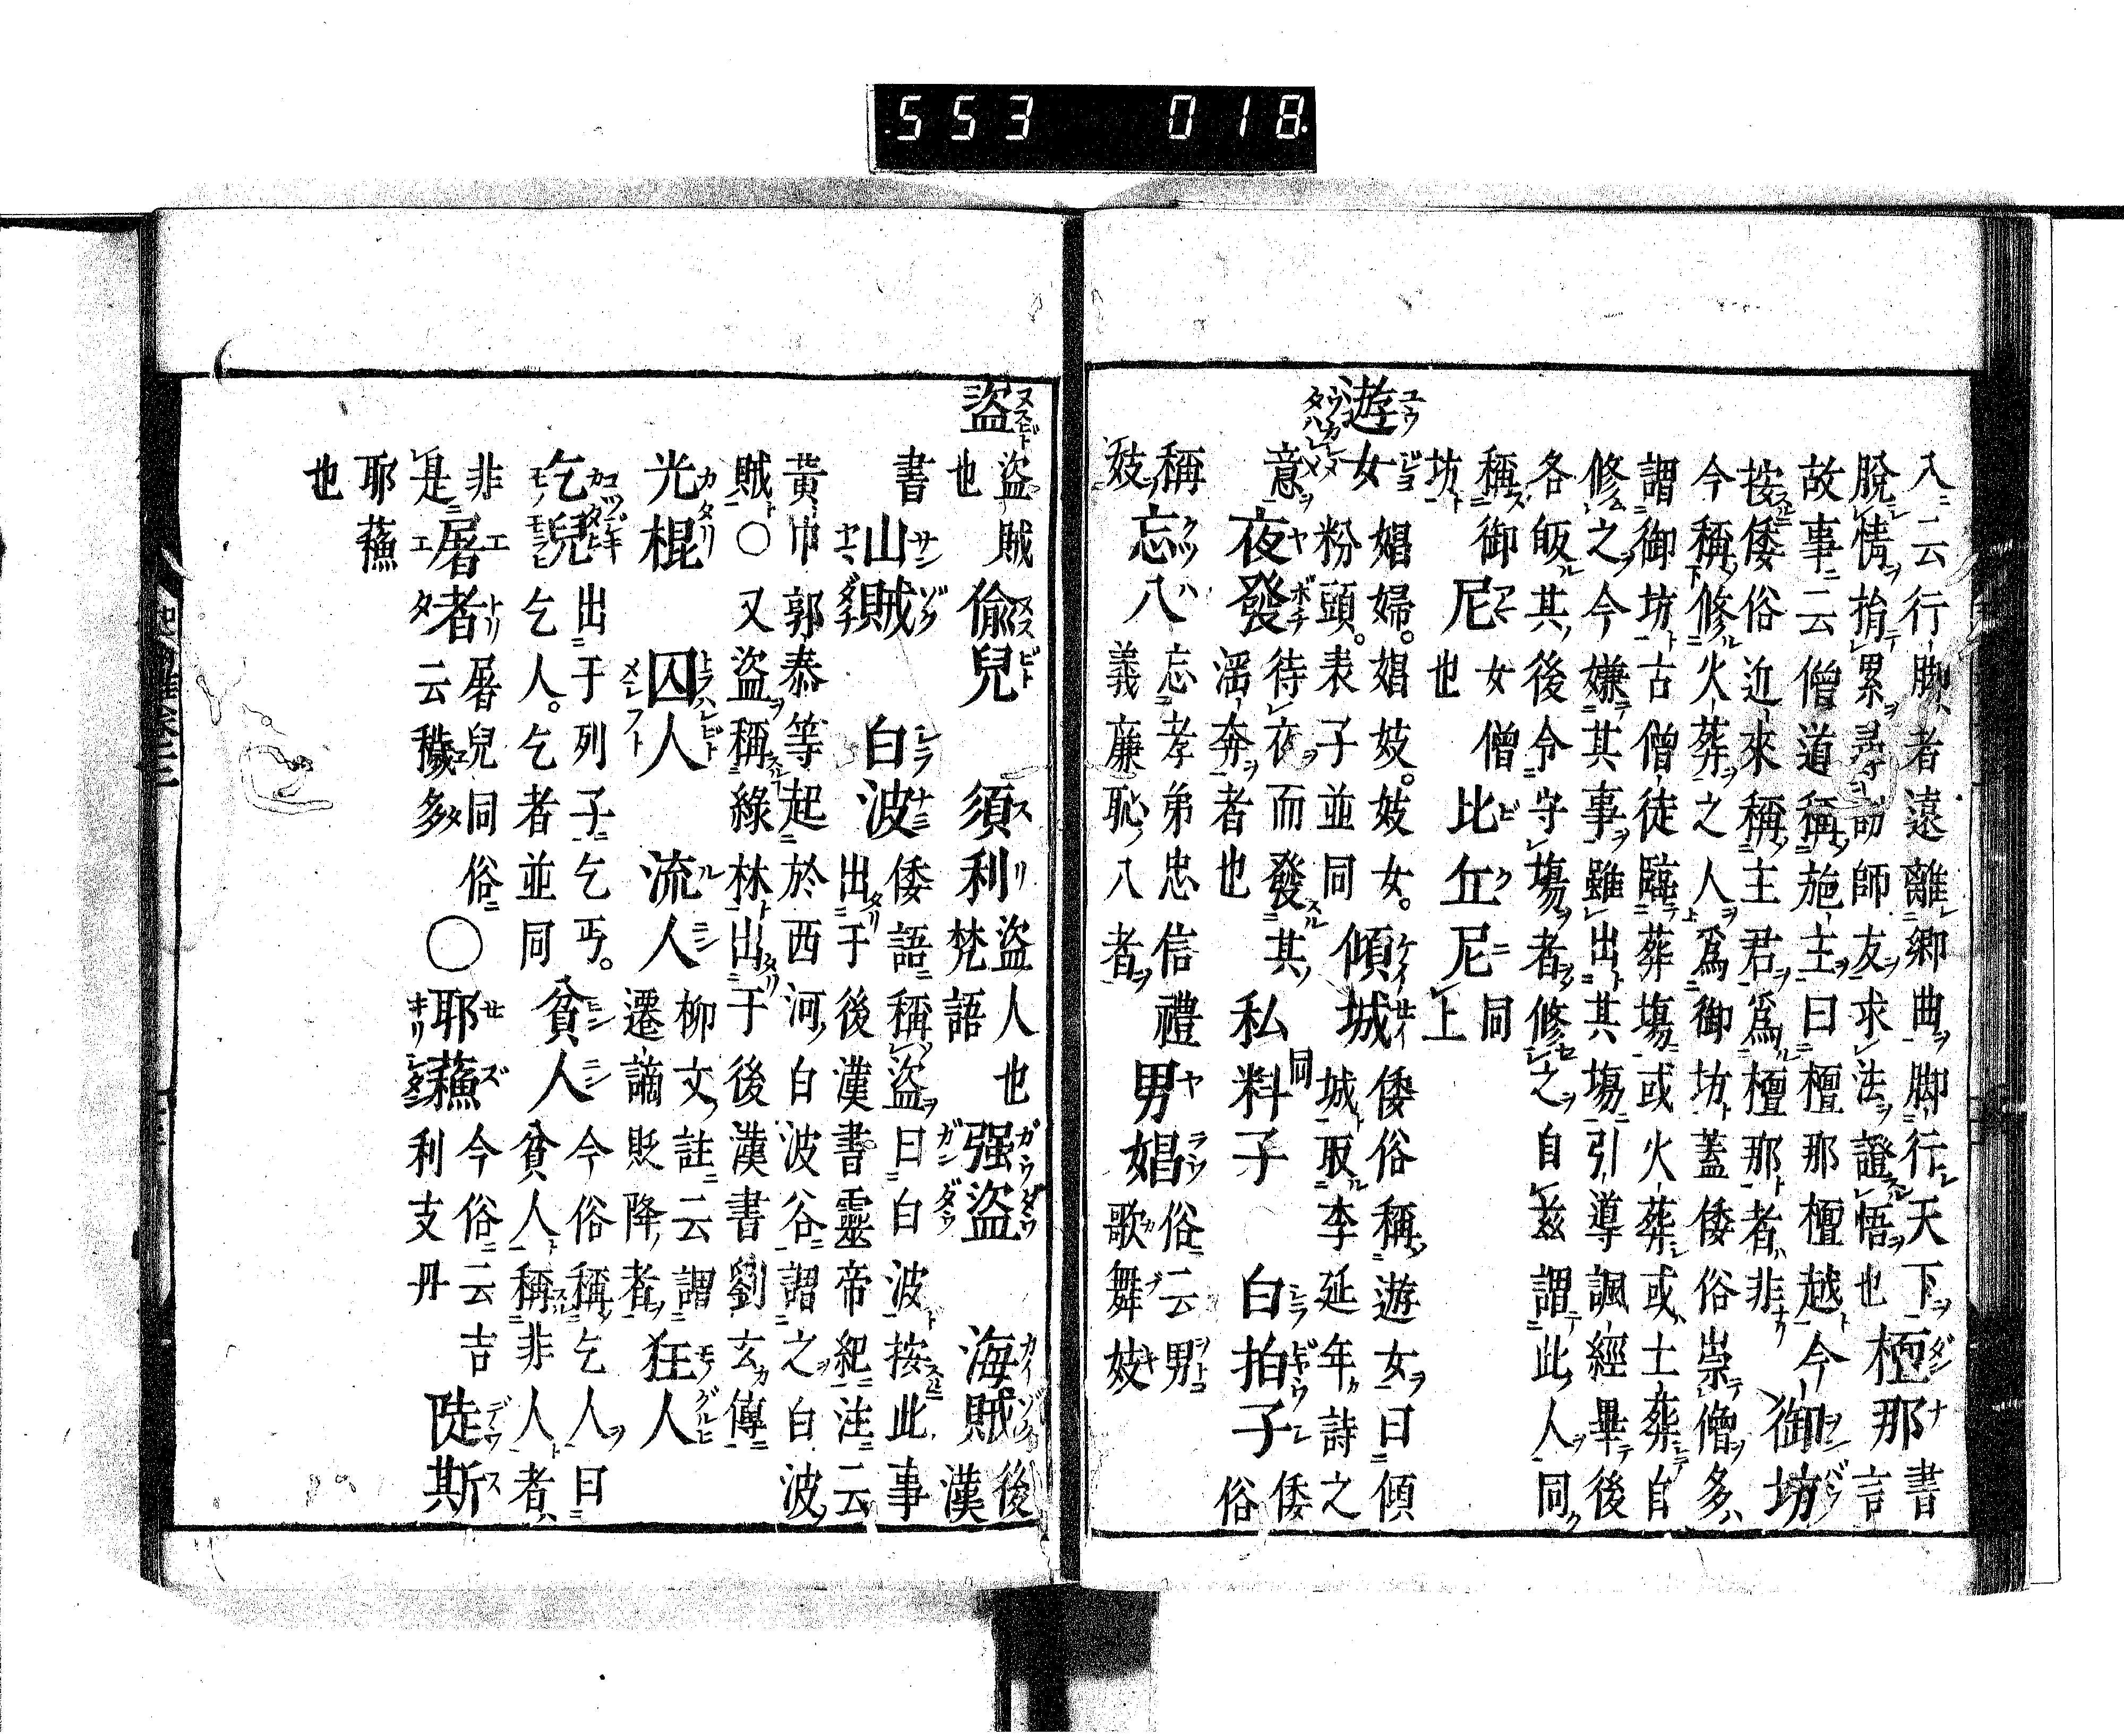 553 018
入云行脚者遠離郷曲脚行天下
脫情捐累尋訪師友求法證悟也
檀那
書言
故事云僧道稱施主曰檀那檀越今
按倭俗近來稱主君爲檀那者非
御坊
今稱修火葬之人爲御坊蓋倭俗崇僧多
謂御坊古僧徒臨葬塲或火葬或土葬自
修之今嫌其事雖出其塲引導諷經畢後
各皈其後令守塲者修之自兹謂此人同
稱御坊
尼
女僧也
比丘尼
同上
遊女
娼婦。娼妓。妓女。
粉頭。表子並同
傾城
倭俗稱遊女曰傾
城取李延年詩之
意
夜發
待夜而發其
滛奔者也
私料子
同
白拍子
倭俗
稱妓
忘八
忘孝弟忠信禮
義廉恥八者
男娼
俗云男
歌舞妓
盜
盜賊也
偷兒
須利
盜人也
梵語
强盜
海賊
後漢
書
山賊
白波
倭語稱盜曰白波按此事
出于後漢書靈帝紀注云
黃巾郭泰等起於西河白波谷謂之白波
賊○又盜稱綠林出于後漢書劉玄傳
光棍
囚人
流人
柳文註云謂
遷謫貶降者
狂人
乞兒
出于列子乞丐。
乞人。乞者並同
貧人
今俗稱乞人曰
貧人稱非人者
非是
屠者
屠兒同俗
云穢多
○
耶蘓
今俗云吉
利支丹
陡斯
耶蘓也